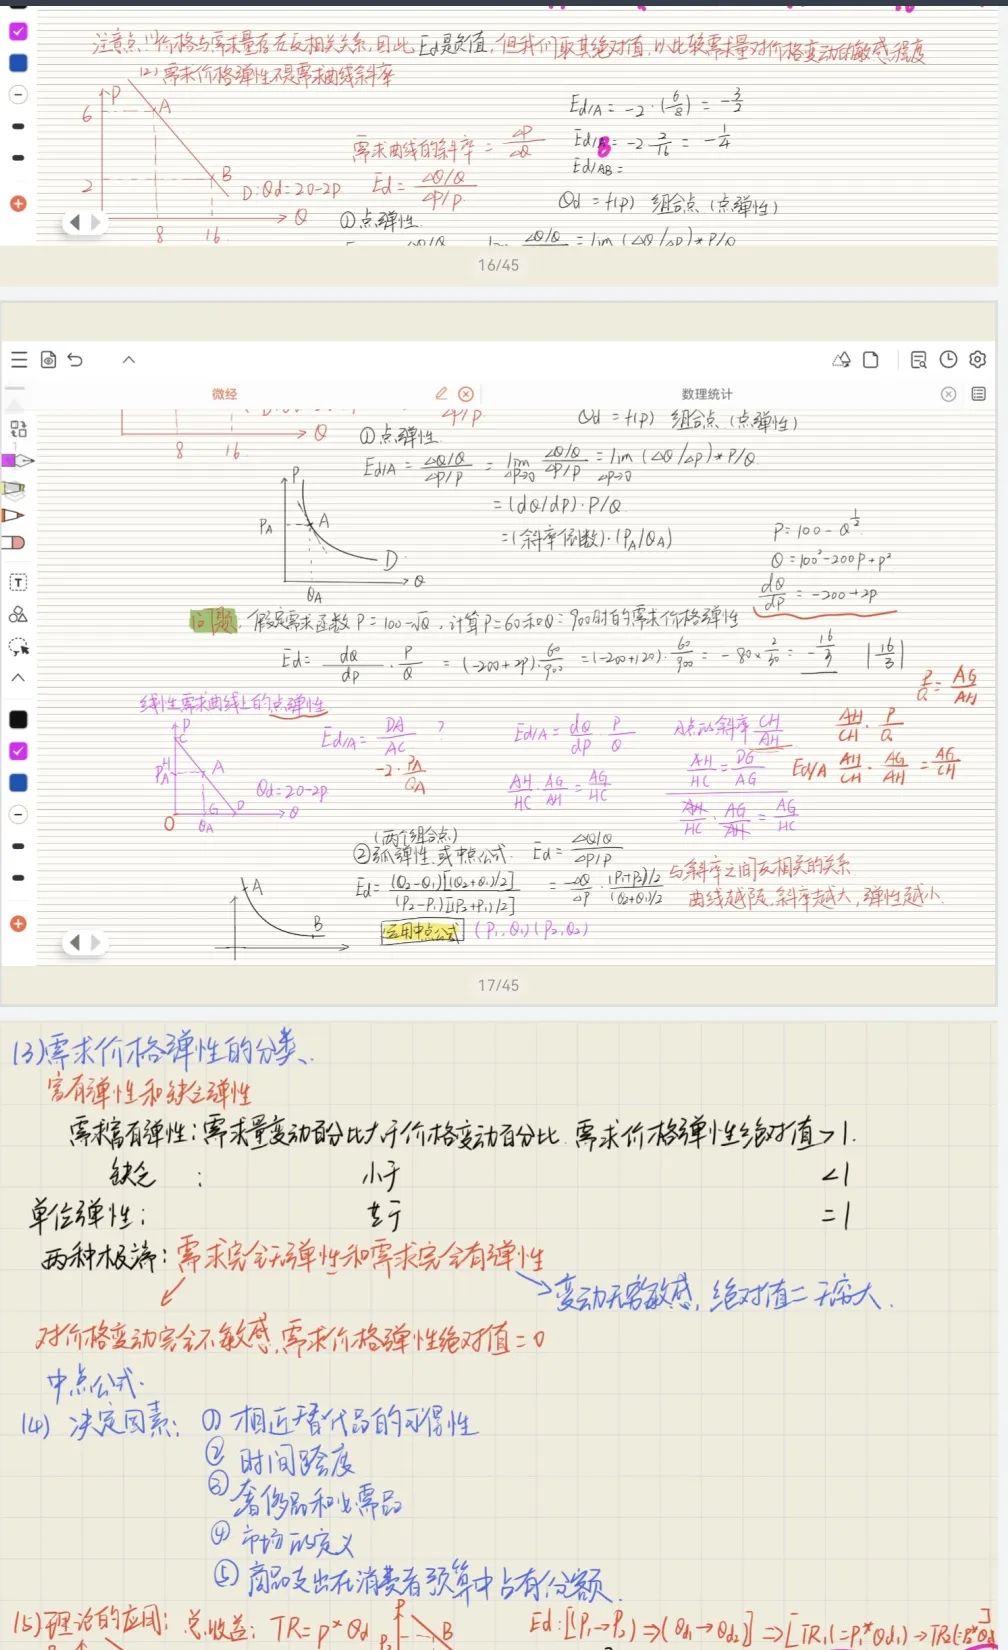 注意点:(1)价格与需求量存在反相关关系,因此Ed是负值,但我们取其绝对值,以比较需求量对价格变动的敏感程度
(2)需求价格弹性不是需求曲线斜率
P
6
A
2
B
D:Qd=20-2P
Q
8
16
需求曲线的斜率 = ΔP/ΔQ
Ed = (ΔQ/Q)/(ΔP/P)
①点弹性
Ed/A = -2·(6/8) = -3/2
Ed/B = -2·2/16 = -1/4
Ed/AB =
Qd = f(P) 组合点(点弹性)
16/45
微经
数理统计
Q
8
16
①点弹性
Qd = f(P) 组合点(点弹性)
Ed/A = (ΔQ/Q)/(ΔP/P) = lim ΔP→0 (ΔQ/Q)/(ΔP/P) = lim ΔP→0 (ΔQ/ΔP)*P/Q
= (dQ/dP)·P/Q
= (斜率倒数)·(PA/QA)
P
PA
A
D
QA
Q
P=100-Q^1/2
Q=100²-200P+P²
dQ/dP = -200+2P
问题:假定需求函数P=100-√Q,计算P=60和Q=900时的需求价格弹性
Ed = dQ/dP · P/Q = (-200+2P)·60/900 = (-200+120)·60/900 = -80×2/30 = -16/3 |16/3|
P/Q = AG/AH
线性需求曲线上的点弹性
P
C
H
PA
A
Qd=20-2P
O
G
QA
D
Q
Ed/A = DA/AC ?
-2·PA/QA
Ed/A = dQ/dP · P/Q
AH/HC · AG/AH = AG/HC
A点的斜率 CH/AH
AH/HC = DG/AG
AH/HC · AG/AH = AG/HC
AH/CH · P/Q
Ed/A AH/CH · AG/AH = AG/CH
(两个组合点)
②弧弹性,或中点公式. Ed = (ΔQ/Q)/(ΔP/P)
Ed = (Q2-Q1)[(Q2+Q1)/2]/(P2-P1)[(P2+P1)/2] = ΔQ/ΔP · (P1+P2)/2/(Q2+Q1)/2
运用中点公式 (P1,Q1)(P2,Q2)
与斜率之间反相关的关系
曲线越陡,斜率越大,弹性越小.
A
B
17/45
(3)需求价格弹性的分类、
富有弹性和缺乏弹性
需求富有弹性:需求量变动百分比大于价格变动百分比.需求价格弹性绝对值>1.
缺乏 : 小于 <1
单位弹性: 等于 =1
两种极端:需求完全无弹性和需求完全有弹性
变动无穷敏感,绝对值=无穷大.
对价格变动完全不敏感,需求价格弹性绝对值=0
中点公式.
(4) 决定因素: ① 相近替代品的可得性
② 时间跨度
③ 奢侈品和必需品
④ 市场的定义
⑤ 商品支出在消费者预算中占有份额.
(5)理论的应用:总收益:TR=P*Qd
P
B
Ed:[(P1→P2)⇒(Qd1→Qd2)]⇒[TR1(=P1*Qd1)→TR2(=P2*Qd2)]